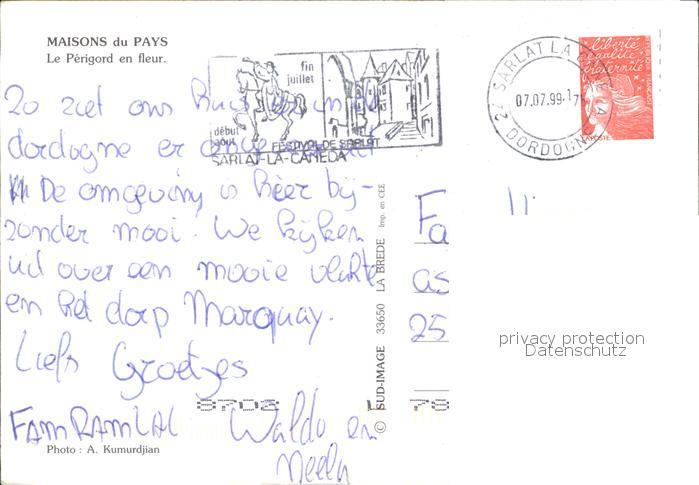 MAISONS du PAYS
Le Périgord en fleur.
fin
juillet
début
août
FESTIVAL DE SARLAT
SARLAT-LA-CANEDA
24 SARLAT LA
07.07.99-17
DORDOGNE
liberté
égalité
fraternité
REPUBLIQUE FRANÇAISE
LA POSTE
Zo ziet ons huis in de
dordogne er
De omgeving is héér bij-
zonder mooi. We kijken
uit over een mooie vlakte
en het dorp Marquay.
Liefs Groetjes
FAM RAMLAL Waldo en
Photo : A. Kumurdjian
© SUD-IMAGE 33650 LA BREDE Imp. en CEE
Fa
as
25
8708
78
privacy protection
Datenschutz